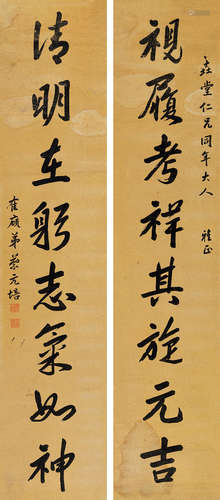 視履考祥其旋元吉
森堂仁兄同年大人 雅正
清明在躬志氣如神
隺廎弟蔡元培